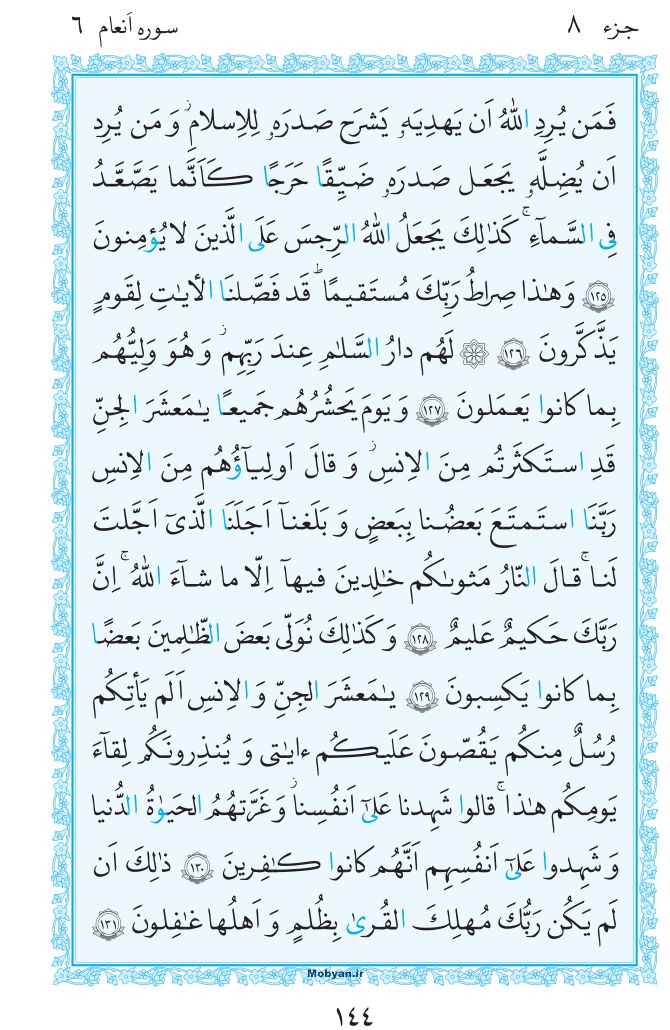 جزء ٨
سوره اَنعام ٦
فَمَن يُرِدِ اللهُ اَن يَهدِيَهۥ يَشرَح صَدرَهۥ لِلاِسلامِ ۖ وَ مَن يُرِد
اَن يُضِلَّهۥ يَجعَل صَدرَهۥ ضَيِّقًا حَرَجًا كَاَنَّما يَصَّعَّدُ
فِى السَّمآءِ ۚ كَذٰلِكَ يَجعَلُ اللهُ الرِّجسَ عَلَى الَّذينَ لا يُؤمِنونَ
﴿١٢٥﴾ وَ هٰذا صِراطُ رَبِّكَ مُستَقيمًا ۗ قَد فَصَّلنَا الأيٰتِ لِقَومٍ
يَذَّكَّرونَ ﴿١٢٦﴾ ۞ لَهُم دارُ السَّلٰمِ عِندَ رَبِّهِم ۖ وَ هُوَ وَلِيُّهُم
بِما كانوا يَعمَلونَ ﴿١٢٧﴾ وَ يَومَ يَحشُرُهُم جَميعًا يـٰمَعشَرَ الجِنِّ
قَدِ استَكثَرتُم مِنَ الاِنسِ ۖ وَ قالَ اَولِيآؤُهُم مِنَ الاِنسِ
رَبَّنَا استَمتَعَ بَعضُنا بِبَعضٍ وَ بَلَغنآ اَجَلَنَا الَّذىٓ اَجَّلتَ
لَنا ۚ قالَ النّارُ مَثوىٰكُم خٰلِدينَ فيهآ اِلّا ما شآءَ اللهُ ۚ اِنَّ
رَبَّكَ حَكيمٌ عَليمٌ ﴿١٢٨﴾ وَ كَذٰلِكَ نُوَلّى بَعضَ الظّٰلِمينَ بَعضًا
بِما كانوا يَكسِبونَ ﴿١٢٩﴾ يـٰمَعشَرَ الجِنِّ وَ الاِنسِ اَلَم يَأتِكُم
رُسُلٌ مِنكُم يَقُصّونَ عَلَيكُم ءايٰتى وَ يُنذِرونَكُم لِقآءَ
يَومِكُم هٰذا ۚ قالوا شَهِدنا عَلىٰٓ اَنفُسِنا ۖ وَ غَرَّتهُمُ الحَيوٰةُ الدُّنيا
وَ شَهِدوا عَلىٰٓ اَنفُسِهِم اَنَّهُم كانوا كٰفِرينَ ﴿١٣٠﴾ ذٰلِكَ اَن
لَم يَكُن رَبُّكَ مُهلِكَ القُرىٰ بِظُلمٍ وَ اَهلُها غٰفِلونَ ﴿١٣١﴾
Mobyan.ir
١٤٤